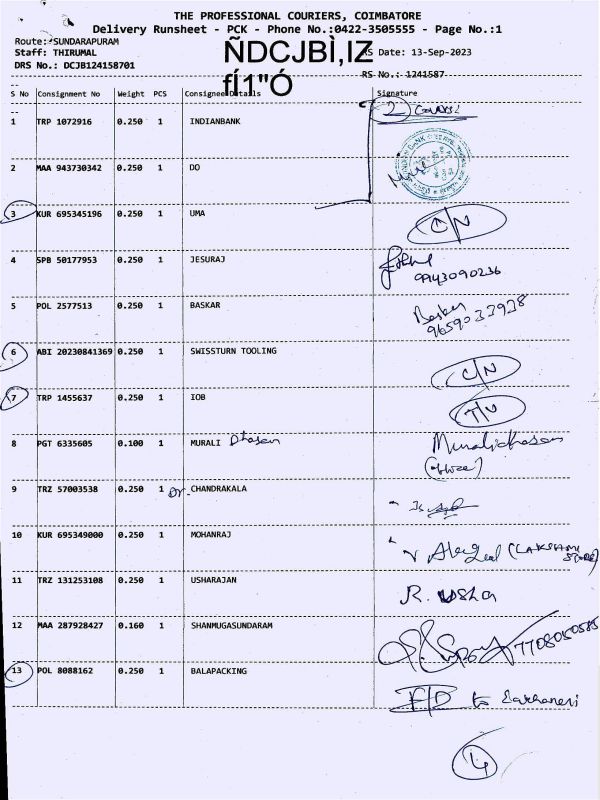 THE PROFESSIONAL COURIERS, COIMBATORE
Delivery Runsheet - PCK - Phone No.:0422-3505555 - Page No.:1
Route: SUNDARAPURAM
Staff: THIRUMAL
DRS No.: DCJB124158701
ÑDCJBÌ,IZ
fÍ1"Ó
RS Date: 13-Sep-2023
RS No.: 1241587
S No Consignment No Weight PCS Consignee Details Signature
1 TRP 1072916 0.250 1 INDIANBANK 2
2 MAA 943730342 0.250 1 DO
3 KUR 695345196 0.250 1 UMA C/N
4 SPB 50177953 0.250 1 JESURAJ
9943090236
5 POL 2577513 0.250 1 BASKAR Baskar
9659033938
6 ABI 20230841369 0.250 1 SWISSTURN TOOLING C/N
7 TRP 1455637 0.250 1 IOB
8 PGT 6335605 0.100 1 MURALI Dhasan Muralidhasan
9 TRZ 57003538 0.250 1 Dr. CHANDRAKALA
10 KUR 695349000 0.250 1 MOHANRAJ (LAKSHMI STORE)
11 TRZ 131253108 0.250 1 USHARAJAN R. Usha
12 MAA 287928427 0.160 1 SHANMUGASUNDARAM 7708050585
13 POL 8088162 0.250 1 BALAPACKING F/D to
4